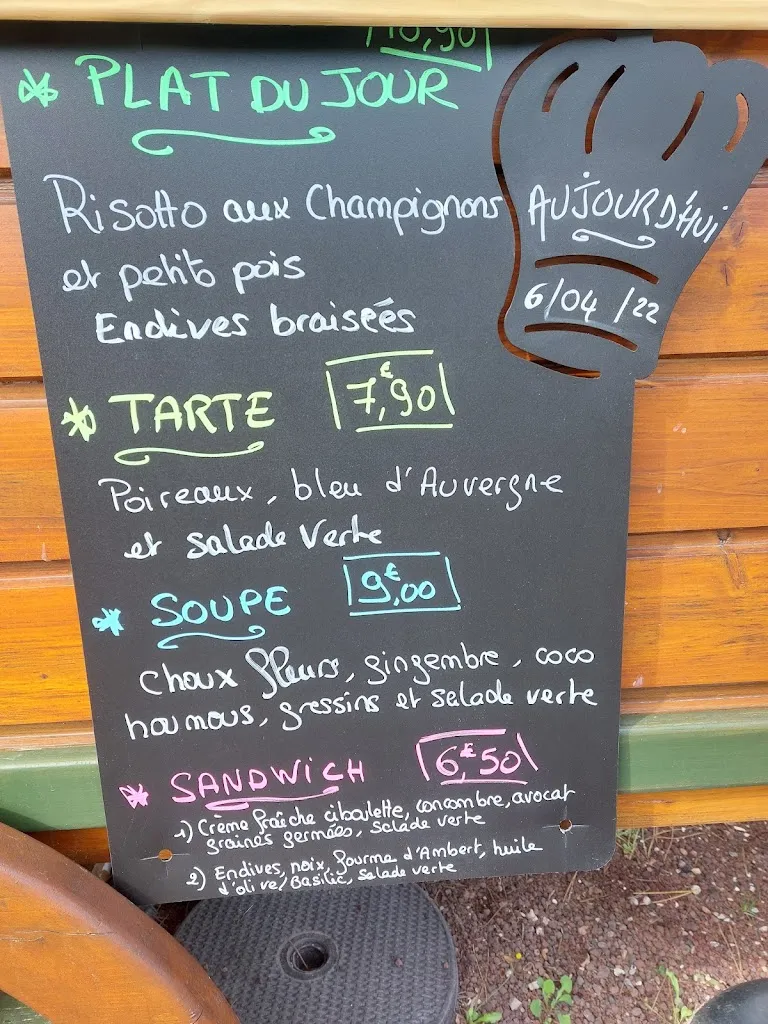 10,90
* PLAT DU JOUR
Risotto aux Champignons
et petits pois
Endives braisées
AUJOURD'HUI
6/04/22
* TARTE 7,€90
Poireaux, bleu d'Auvergne
et salade verte
* SOUPE 9,€00
Choux fleurs, gingembre, coco
houmous, gressins et salade verte
* SANDWICH 6,€50
1) Crème fraîche ciboulette, concombre, avocat
graines germées, salade verte
2) Endives, noix, fourme d'Ambert, huile
d'olive/Basilic, salade verte